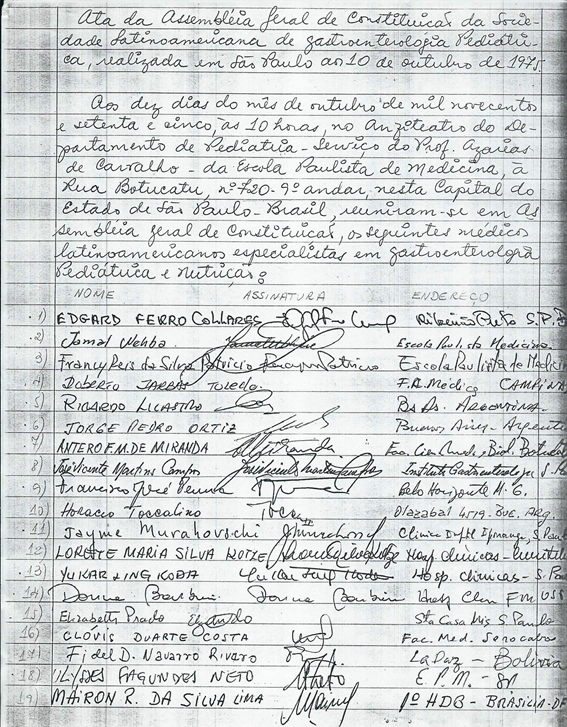 Ata da Assembléia Geral de Constituicão da Socie-
dade Latinoamericana de Gastroenterologia Pediatri-
ca, realizada em São Paulo aos 10 de outubro de 1975.
Aos dez dias do mês de outubro de mil novecentos
e setenta e cinco, às 10 horas, no Anfiteatro do De-
partamento de Pediatria - Serviço do Prof. Azarias
de Carvalho - da Escola Paulista de Medicina, à
Rua Botucatu, nº 720 - 9º andar, nesta Capital do
Estado de São Paulo - Brasil, reuniram-se em As
sembléia geral de Constituicão, os seguintes médicos
latinoamericanos especialistas em gastroenterologia
Pediátrica e Nutrição:
NOME ASSINATURA ENDEREÇO
1) EDGARD FERRO COLLARES Ribeirão Preto S.P.
2) Jamal Wehba Escola Paulista Medicina
3) Francy Reis da Silva Patricio Escola Paulista de Medicin
4) Roberto JARBAS TOLEDO. F. Médica CAMPINA
5) RICARDO LICASTRO Bs As. ARGENTINA
6) JORGE PEDRO ORTIZ Buenos Aires - Argenti
7) ANTERO F.M. DE MIRANDA Fac. Cien. Med. e Biol. Botucat
8) José Vicente Martins Campos Instituto Gastroenterologia S. P
9) Francisco José Penna Belo Horizonte M.G.
10) Horacio Toccalino Olazabal 4519. Bue. ARG.
11) Jayme Murahovschi Clinica S. Paul
12) LORETE MARIA SILVA KOTZE Hosp. Clinicas - Curitiba
13) YU KAR LING KODA Hosp. Clinicas - S. Pau
14) Dorina Barbieri Dorina Barbieri Hosp Clin FMUSP
15) Elizabeth Prado Sta Casa Mis S. Paulo
16) CLÓVIS DUARTE COSTA Fac. Med. Sorocaba
17) Fidel D. Navarro Rivero La Paz - Bolivia
18) ULYSSES FAGUNDES NETO E.P.M. - SP
19) MAIRON R. DA SILVA LIMA 1º HDB - BRASILIA-DF